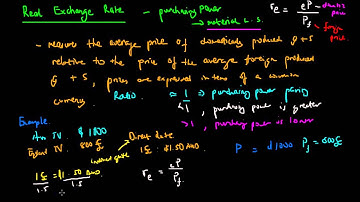 Real Exchange Rate - purchasing power
→ material L.S.
re = eP / Pf
→ domestic price
→ foreign price
- measure the average price of domestically produced g + s
relative to the price of the average foreign produced
g + s, prices are expressed in terms of a common
currency.
Ratio = 1 → purchasing power parity
<1, purchasing power is greater
>1, purchasing power is lower
Example
Aus TV. $1000
800£
Direct Rate
indirect quote
1£ : $1.50 AUD
1£ = $1.50 AUD
1.5 1.5
re = eP / Pf
P = $1000 Pf = 800£